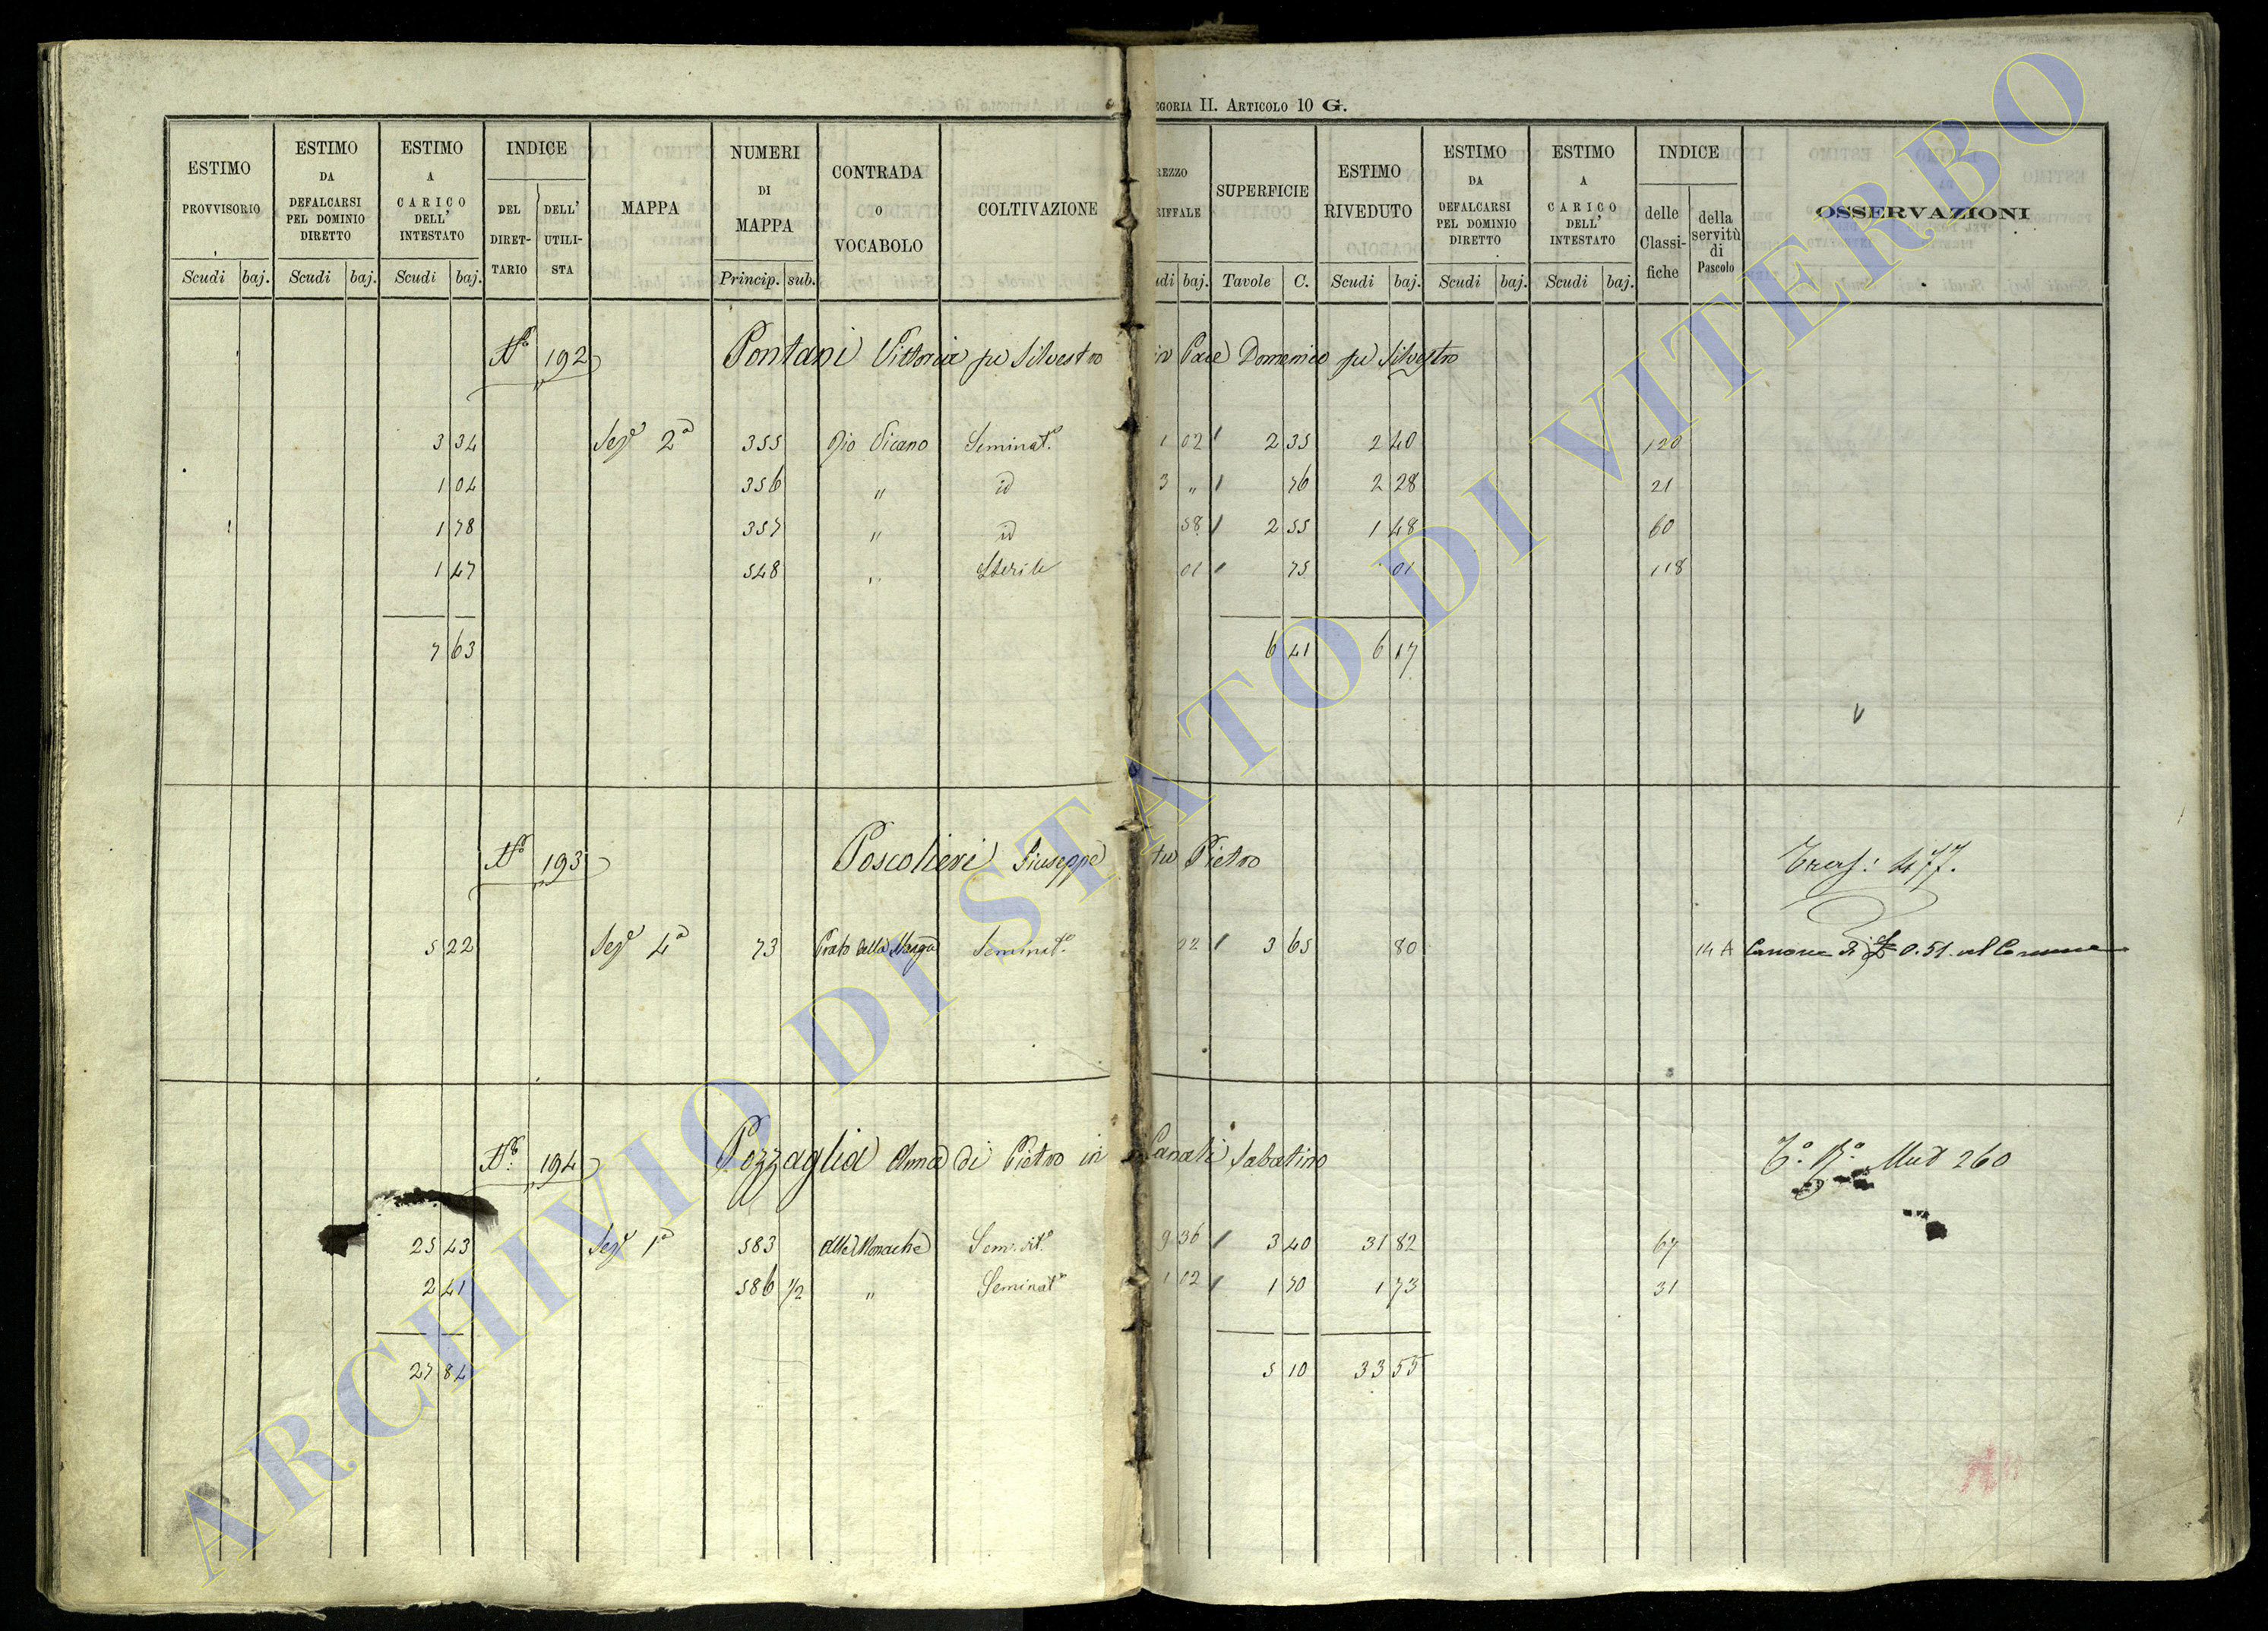 EGORIA II. ARTICOLO 10 G.
ESTIMO PROVVISORIO Scudi baj.
ESTIMO DA DEFALCARSI PEL DOMINIO DIRETTO Scudi baj.
ESTIMO A CARICO DELL' INTESTATO Scudi baj.
INDICE DEL DIRET-TARIO DELL' UTILI-STA
MAPPA
NUMERI DI MAPPA Princip. sub.
CONTRADA O VOCABOLO
COLTIVAZIONE
REZZO RIFFALE udi baj.
SUPERFICIE Tavole C.
ESTIMO RIVEDUTO Scudi baj.
ESTIMO DA DEFALCARSI PEL DOMINIO DIRETTO Scudi baj.
ESTIMO A CARICO DELL' INTESTATO Scudi baj.
INDICE delle Classi-fiche della servitù di Pascolo
OSSERVAZIONI
No 192 Pontani Vittoria fu Silvestro in Pace Domenico fu Silvestro
3 34 Seze 2a 355 Rio Vicano Seminato 1 02 2 35 2 40 120
1 04 356 " id 3 " 76 2 28 21
1 78 357 " id 58 2 55 1 48 60
1 47 548 " Sterile 01 75 01 118
7 63 6 41 6 17
No 193 Poscolieri Giuseppe fu Pietro Trasf: 477.
5 22 Seze 4a 73 Prato della Seminato 22 3 65 80 14 A Canone di 0.51 al Comune
No 194 Pozzaglia Anna di Pietro in Canali Sabatino 260
25 43 Seze 1a 583 Alle Monache Sem. vit.o 9 36 3 40 31 82 67
2 41 586 1/2 " Seminato 1 02 1 70 1 73 31
27 84 5 10 33 55
ARCHIVIO DI STATO DI VITERBO